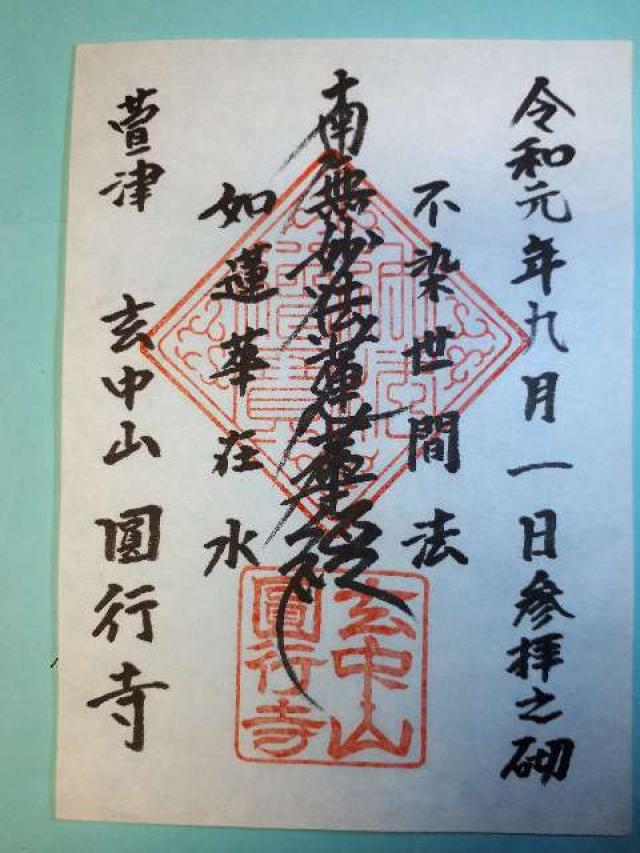 令和元年九月一日参拝之砌
不染世間法
南無妙法蓮華経
如蓮華在水
萱津 玄中山 圓行寺
玄中山
圓行寺